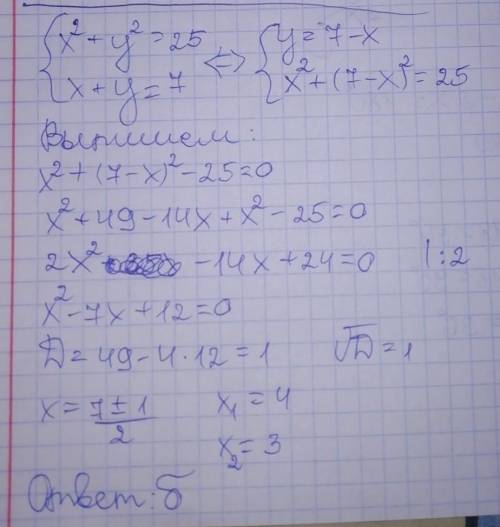 {x² + y² = 25
x + y = 7 <=> {y = 7 - x
x² + (7 - x)² = 25
Выпишем:
x² + (7 - x)² - 25 = 0
x² + 49 - 14x + x² - 25 = 0
2x² - 14x + 24 = 0 | : 2
x² - 7x + 12 = 0
D = 49 - 4 · 12 = 1 √D = 1
x = (7 ± 1)/2 x₁ = 4
x₂ = 3
Ответ: б